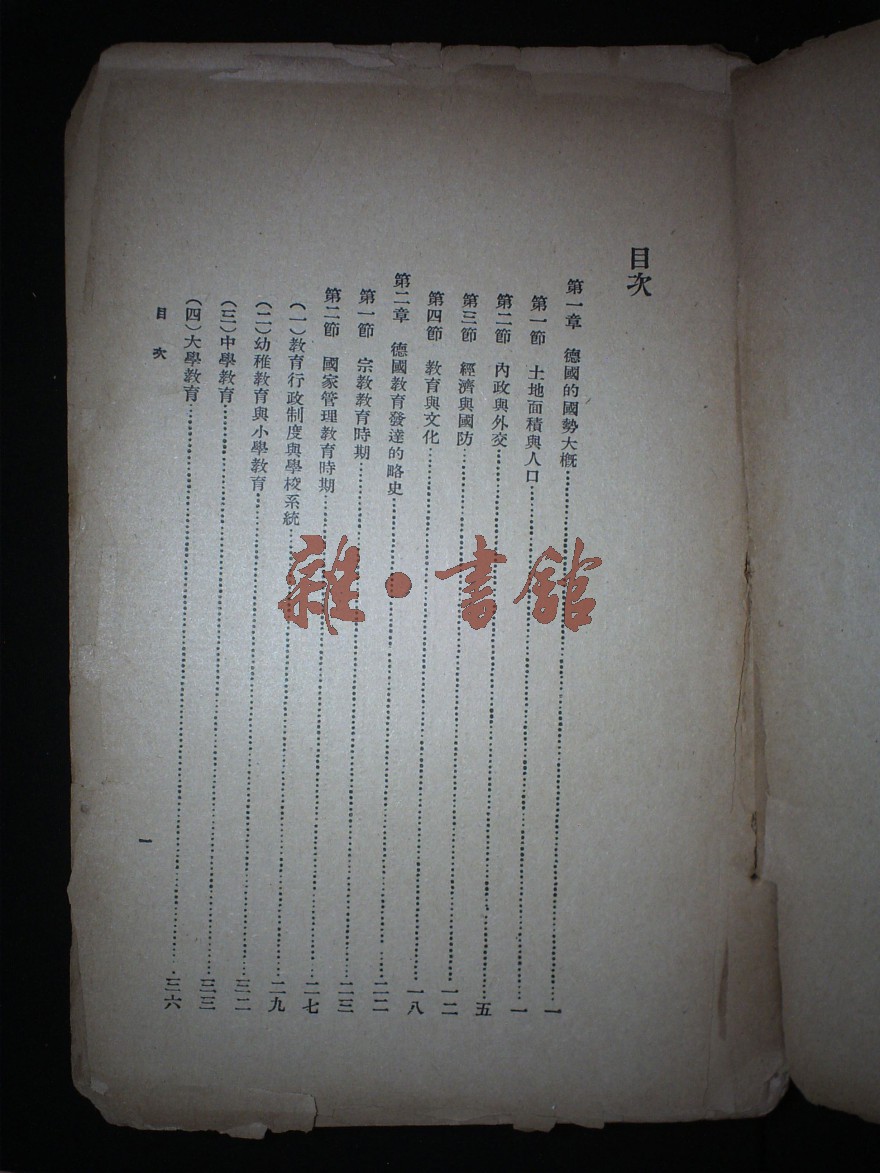 目次
第一章 德國的國勢大概……一
第一節 土地面積與人口……一
第二節 內政與外交……五
第三節 經濟與國防……一二
第四節 教育與文化……一八
第二章 德國教育發達的略史……二二
第一節 宗教教育時期……二三
第二節 國家管理教育時期……二七
（一）教育行政制度與學校系統……二九
（二）幼稚教育與小學教育……三二
（三）中學教育……三三
（四）大學教育……三六
目次
一
雜·書館